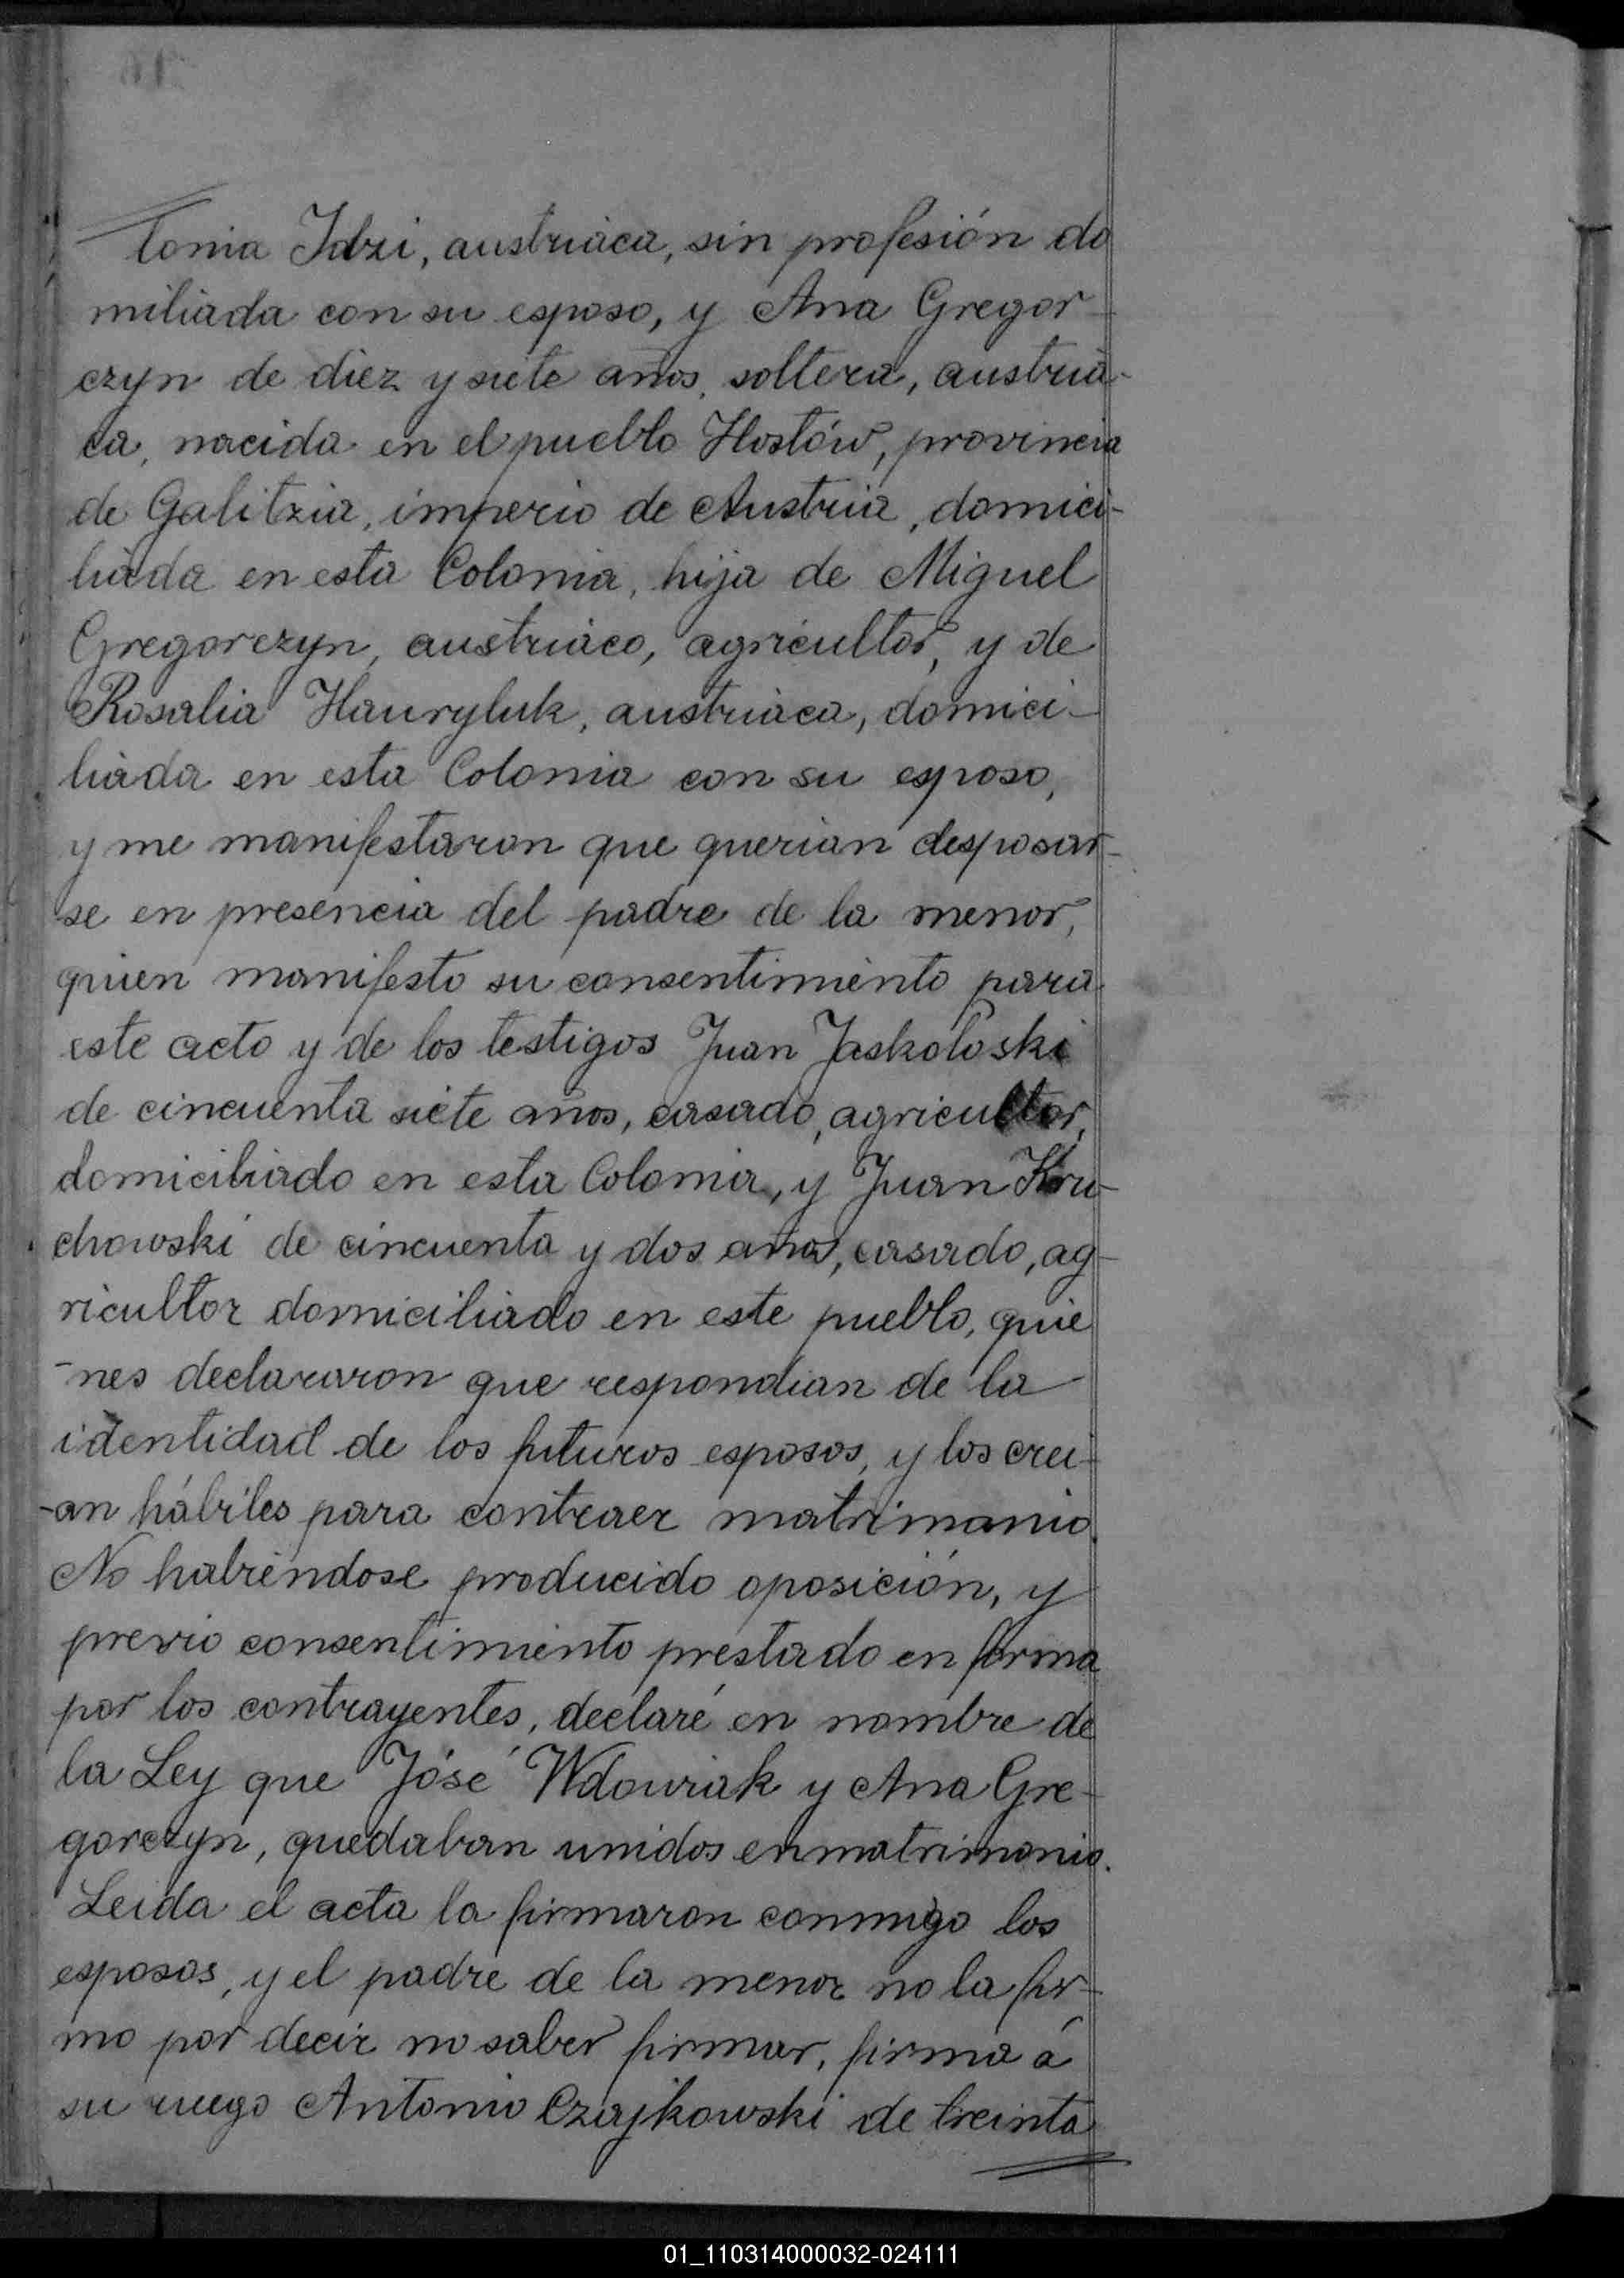 tonia Idzi, austriaca, sin profesión do
miliada con su esposo, y Ana Gregor-
czyn de diez y siete años, soltera, austria-
ca, nacida en el pueblo Hostów, provincia
de Galitzia, imperio de Austria, domici-
liada en esta Colonia, hija de Miguel
Gregorczyn, austriaco, agricultor, y de
Rosalia Hauryluk, austriaca, domici-
liada en esta Colonia con su esposo,
y me manifestaron que querian desposar-
se en presencia del padre de la menor,
quien manifesto su consentimiento para
este acto y de los testigos Juan Jaskoloski
de cincuenta siete años, casado, agricultor,
domiciliado en esta Colonia, y Juan Kru-
chowski de cincuenta y dos años, casado, ag-
ricultor domiciliado en este pueblo, quie
-nes declararon que respondian de la
identidad de los futuros esposos, y los crei-
-an hábiles para contraer matrimonio.
No habiéndose producido oposición, y
previo consentimiento prestado en forma
por los contrayentes, declaré en nombre de
la Ley que Jósé Wdowiak y Ana Gre-
gorczyn, quedaban unidos en matrimonio.
Leida el acta la firmaron conmigo los
esposos, y el padre de la menor no la fir-
mo por decir no saber firmar, firma á
su ruego Antonio Czajkowski de treinta
01_110314000032-024111